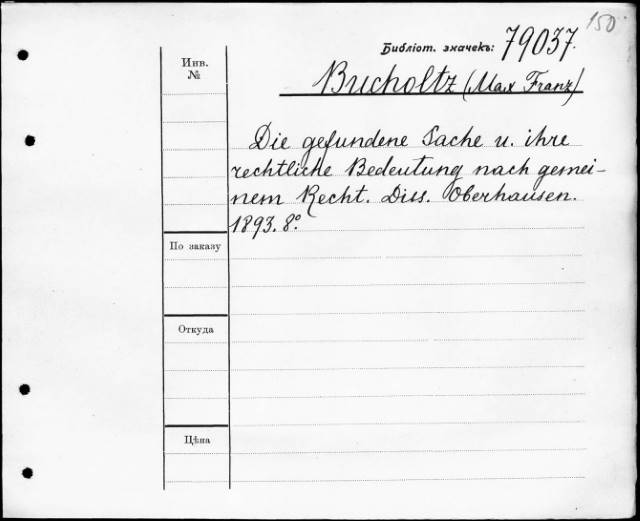 150
Библіот. значекъ: 79037.
Инв.
№
Bucholtz (Max Franz)
Die gefundene Sache u. ihre
rechtliche Bedeutung nach gemei-
nem Recht. Diss. Oberhausen.
1893. 8°.
По заказу
Откуда
Цѣна